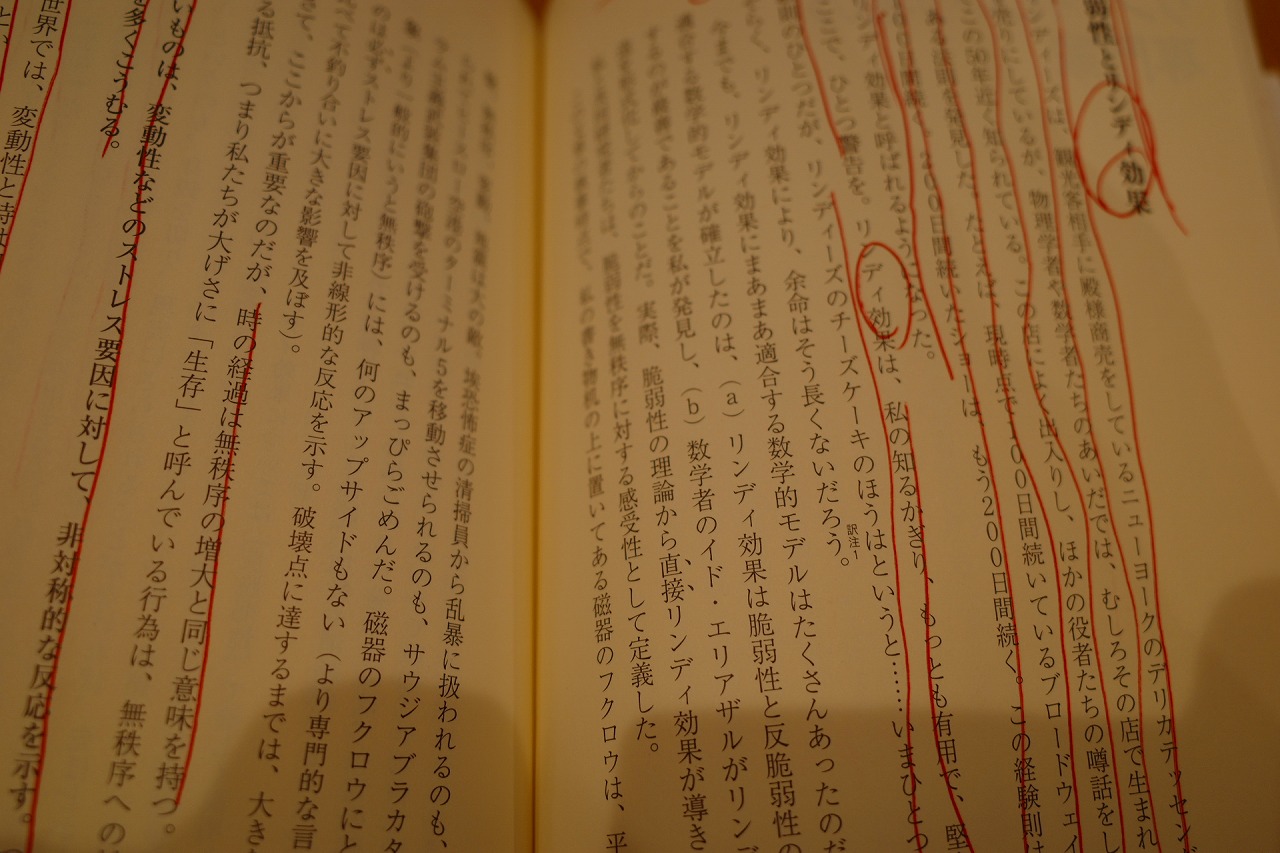 脆弱性とリンディ効果
ンディーズは、観光客相手に殿様商売をしているニューヨークのデリカテッセンだ
売りにしているが、物理学者や数学者たちのあいだでは、むしろその店で生まれ
この50年近く知られている。この店によく出入りし、ほかの役者たちの噂話をし
ある法則を発見した。たとえば、現時点で100日間続いているブロードウェイ
100日間続く。200日間続いたショーは、もう200日間続く。この経験則は
リンディ効果と呼ばれるようになった。
ここで、ひとつ警告を。リンディ効果は、私の知るかぎり、もっとも有用で、堅
則のひとつだが、リンディーズのチーズケーキのほうはというと……いまひとつ
そらく、リンディ効果により、余命はそう長くないだろう。訳注1
今までも、リンディ効果にまあまあ適合する数学的モデルはたくさんあったのだ
適合する数学的モデルが確立したのは、(a)リンディ効果は脆弱性と反脆弱性の
するのが最善であることを私が発見し、(b)数学者のイド・エリアザルがリンデ
を形式化してからのことだ。実際、脆弱性の理論から直接リンディ効果が導き
脆弱性を無秩序に対する感受性として定義した。
私の書き物机の上に置いてある磁器のフクロウは、平
地震は大の敵。埃恐怖症の清掃員から乱暴に扱われるのも、
のターミナル5を移動させられるのも、サウジアブラカタ
の砲撃を受けるのも、まっぴらごめんだ。磁器のフクロウにと
(より一般的にいうと無秩序)には、何のアップサイドもない(より専門的な言
のは必ずストレス要因に対して非線形的な反応を示す。破壊点に達するまでは、大き
べて不釣り合いに大きな影響を及ぼす)。
さて、ここからが重要なのだが、時の経過は無秩序の増大と同じ意味を持つ。
る抵抗、つまり私たちが大げさに「生存」と呼んでいる行為は、無秩序への
いものは、変動性などのストレス要因に対して、非対称的な反応を示す。
を多くこうむる。
世界では、変動性と時は